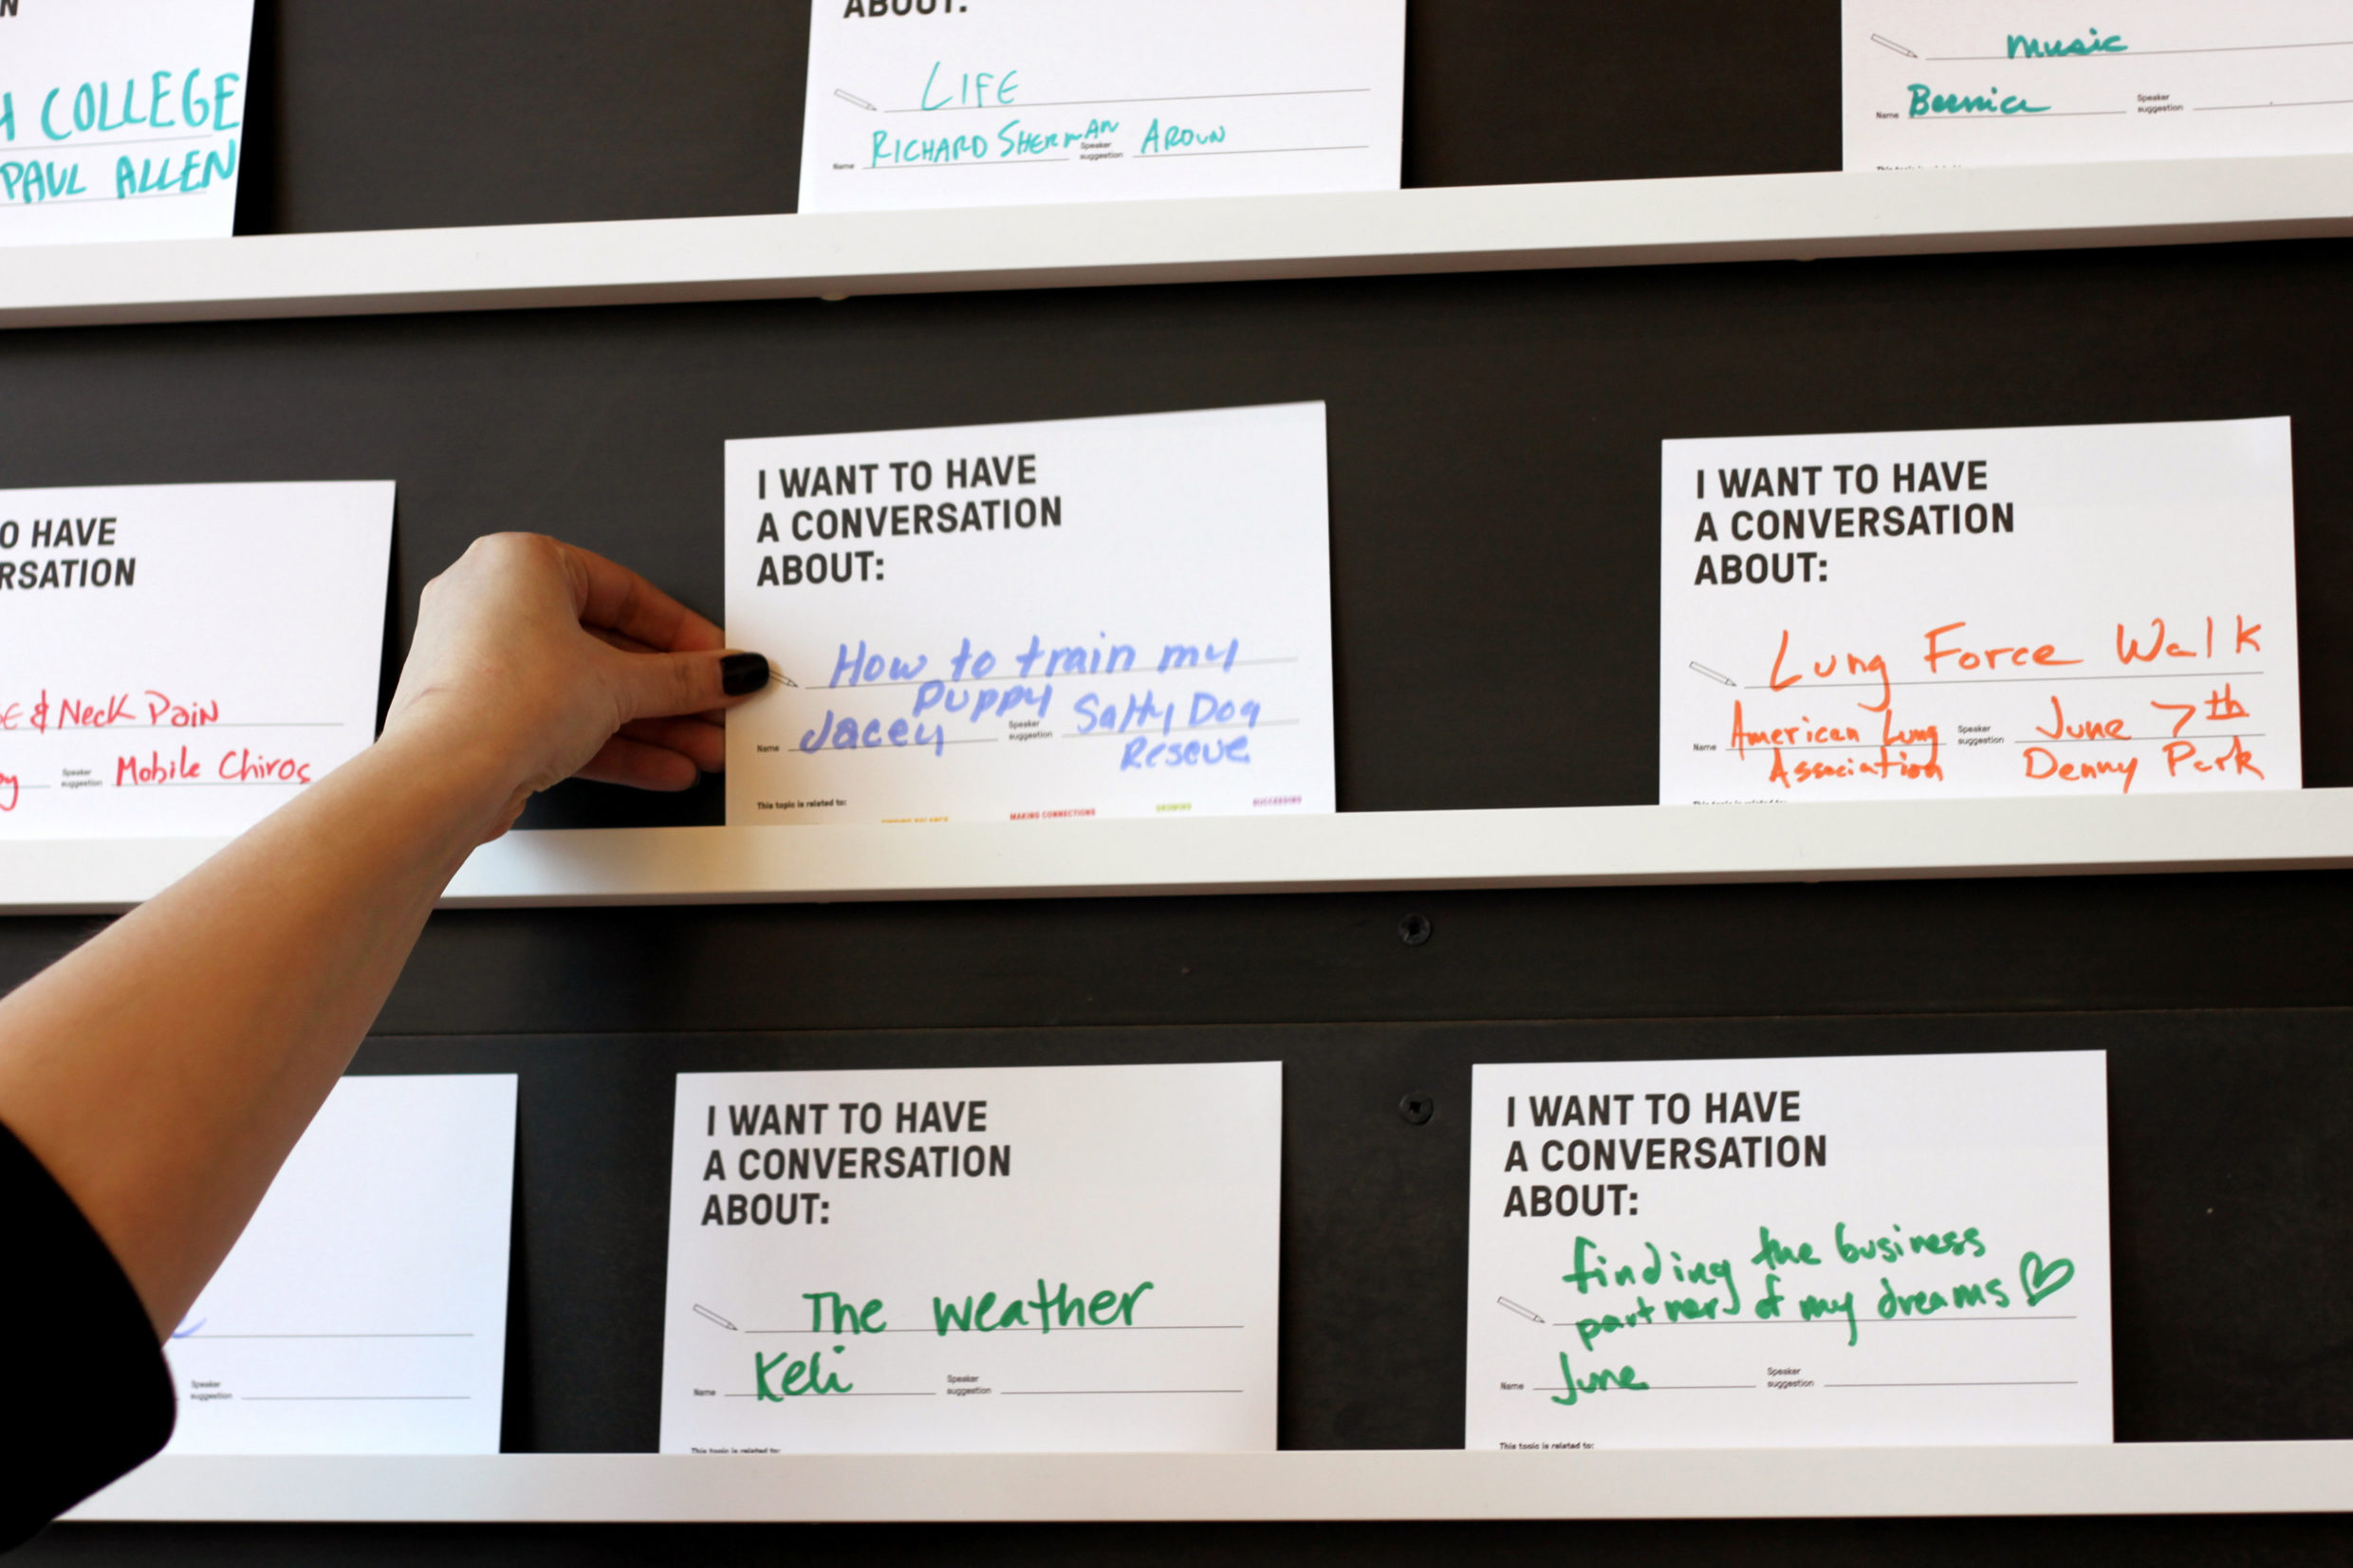 N
H COLLEGE
PAUL ALLEN
ABOUT:
LIFE
Name RICHARD SHERMAN Speaker suggestion AROUN
music
Name Bernice Speaker suggestion
This topic is related to:
O HAVE
RSATION
E & NECK PAIN
Speaker suggestion Mobile Chiros
I WANT TO HAVE
A CONVERSATION
ABOUT:
How to train my
puppy
Name Jacey Speaker suggestion Salty Dog
Rescue
This topic is related to:
FINDING BALANCE MAKING CONNECTIONS GROWING SUCCEEDING
I WANT TO HAVE
A CONVERSATION
ABOUT:
Lung Force Walk
Name American Lung Speaker suggestion June 7th
Association Denny Park
This topic is related to:
Speaker
suggestion
I WANT TO HAVE
A CONVERSATION
ABOUT:
The weather
Name Keli Speaker suggestion
This topic is related to:
I WANT TO HAVE
A CONVERSATION
ABOUT:
finding the business
partner of my dreams
Name June Speaker suggestion
This topic is related to: